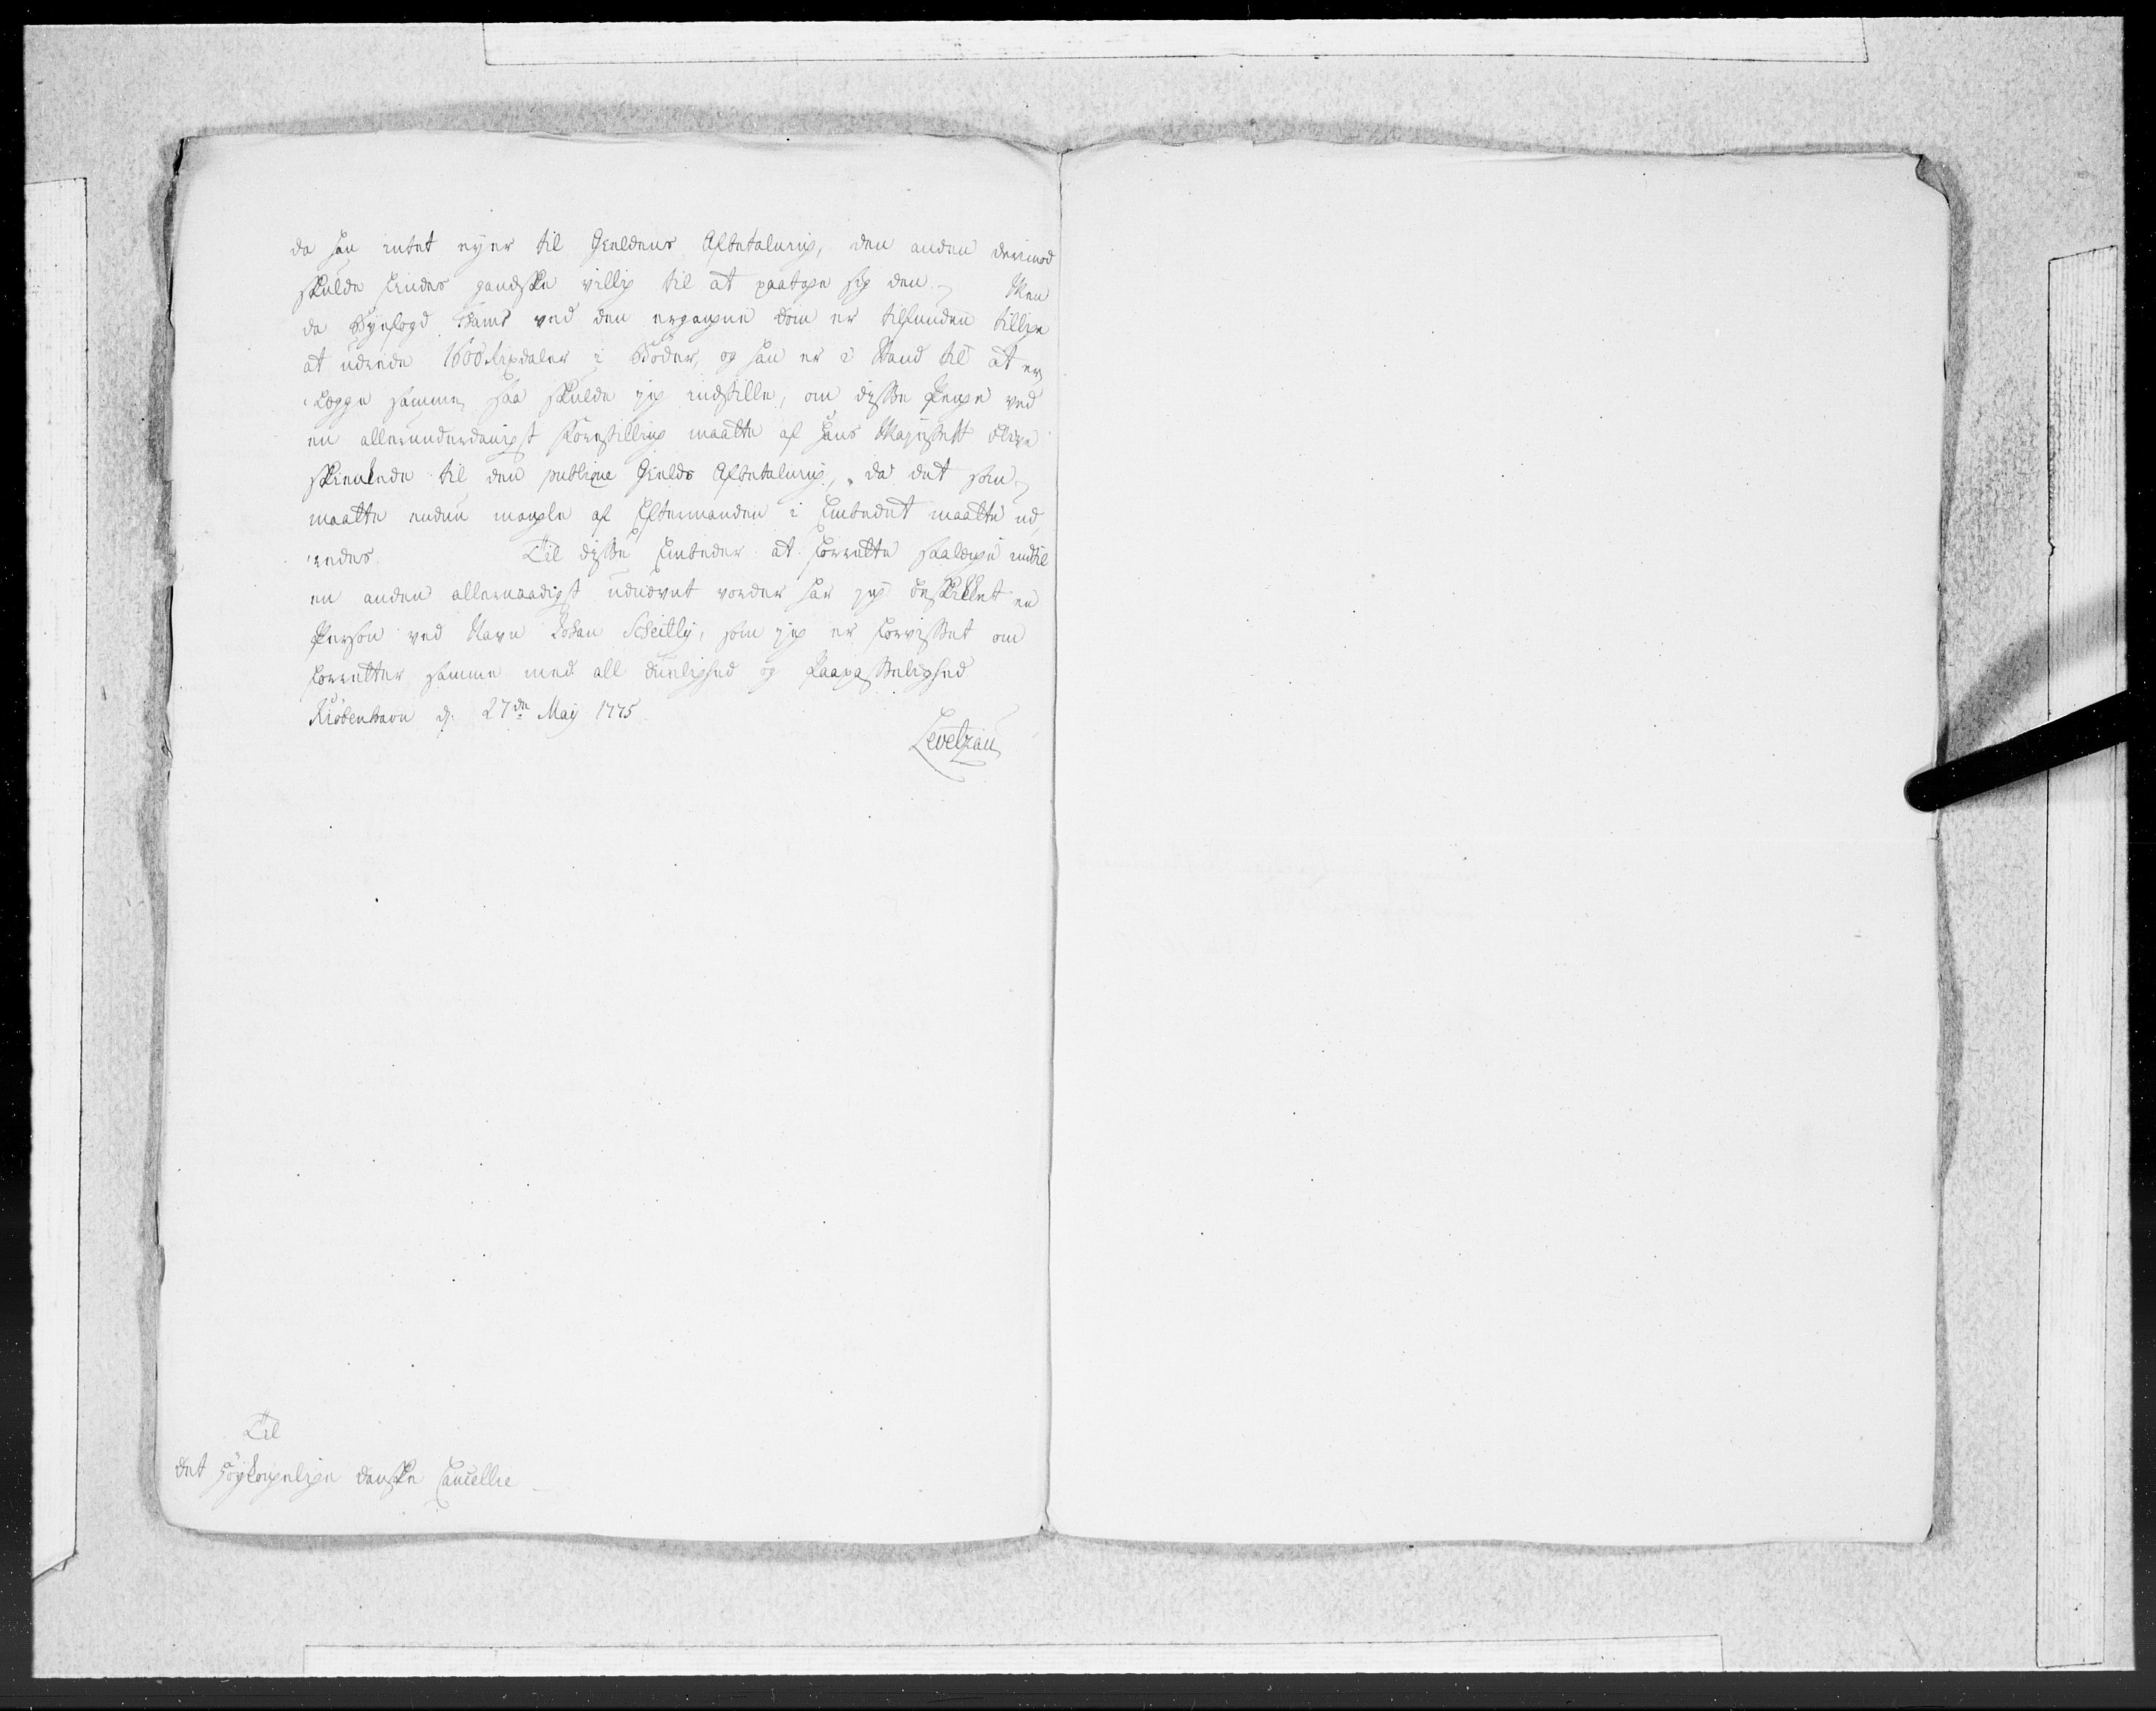 da han intet eyer til Gieldens Afbetaling, den anden derimod
skulde findes gandske villig til at paatage sig den. Men
da Byefogd Thams ved den ergangne Dom er tilfunden tillige
at udrede 1600 Rixdaler i Böder, og han er i Stand til at er¬
lægge samme, saa skulde jeg indstille, om disse Penge ved
en allerunderdanigst Forestilling maatte af Hans Majestett blive
skienkede til den publique Gields Afbetaling, da det som
maatte endnu mangle af Eftermanden i Embedet maatte ud¬
redes. Til disse Embeder at forrette saalænge indtil
en anden allernaadigst udnævnt vorder har jeg beskikket en
Person ved Navn Johan Scheitly, som jeg er forvisset om
forretter samme med all Duelighed og Paapasselighed
Kiöbenhavn d. 27de Maij 1775.
Levetzau
Til
det Höykongelige danske Cancellie